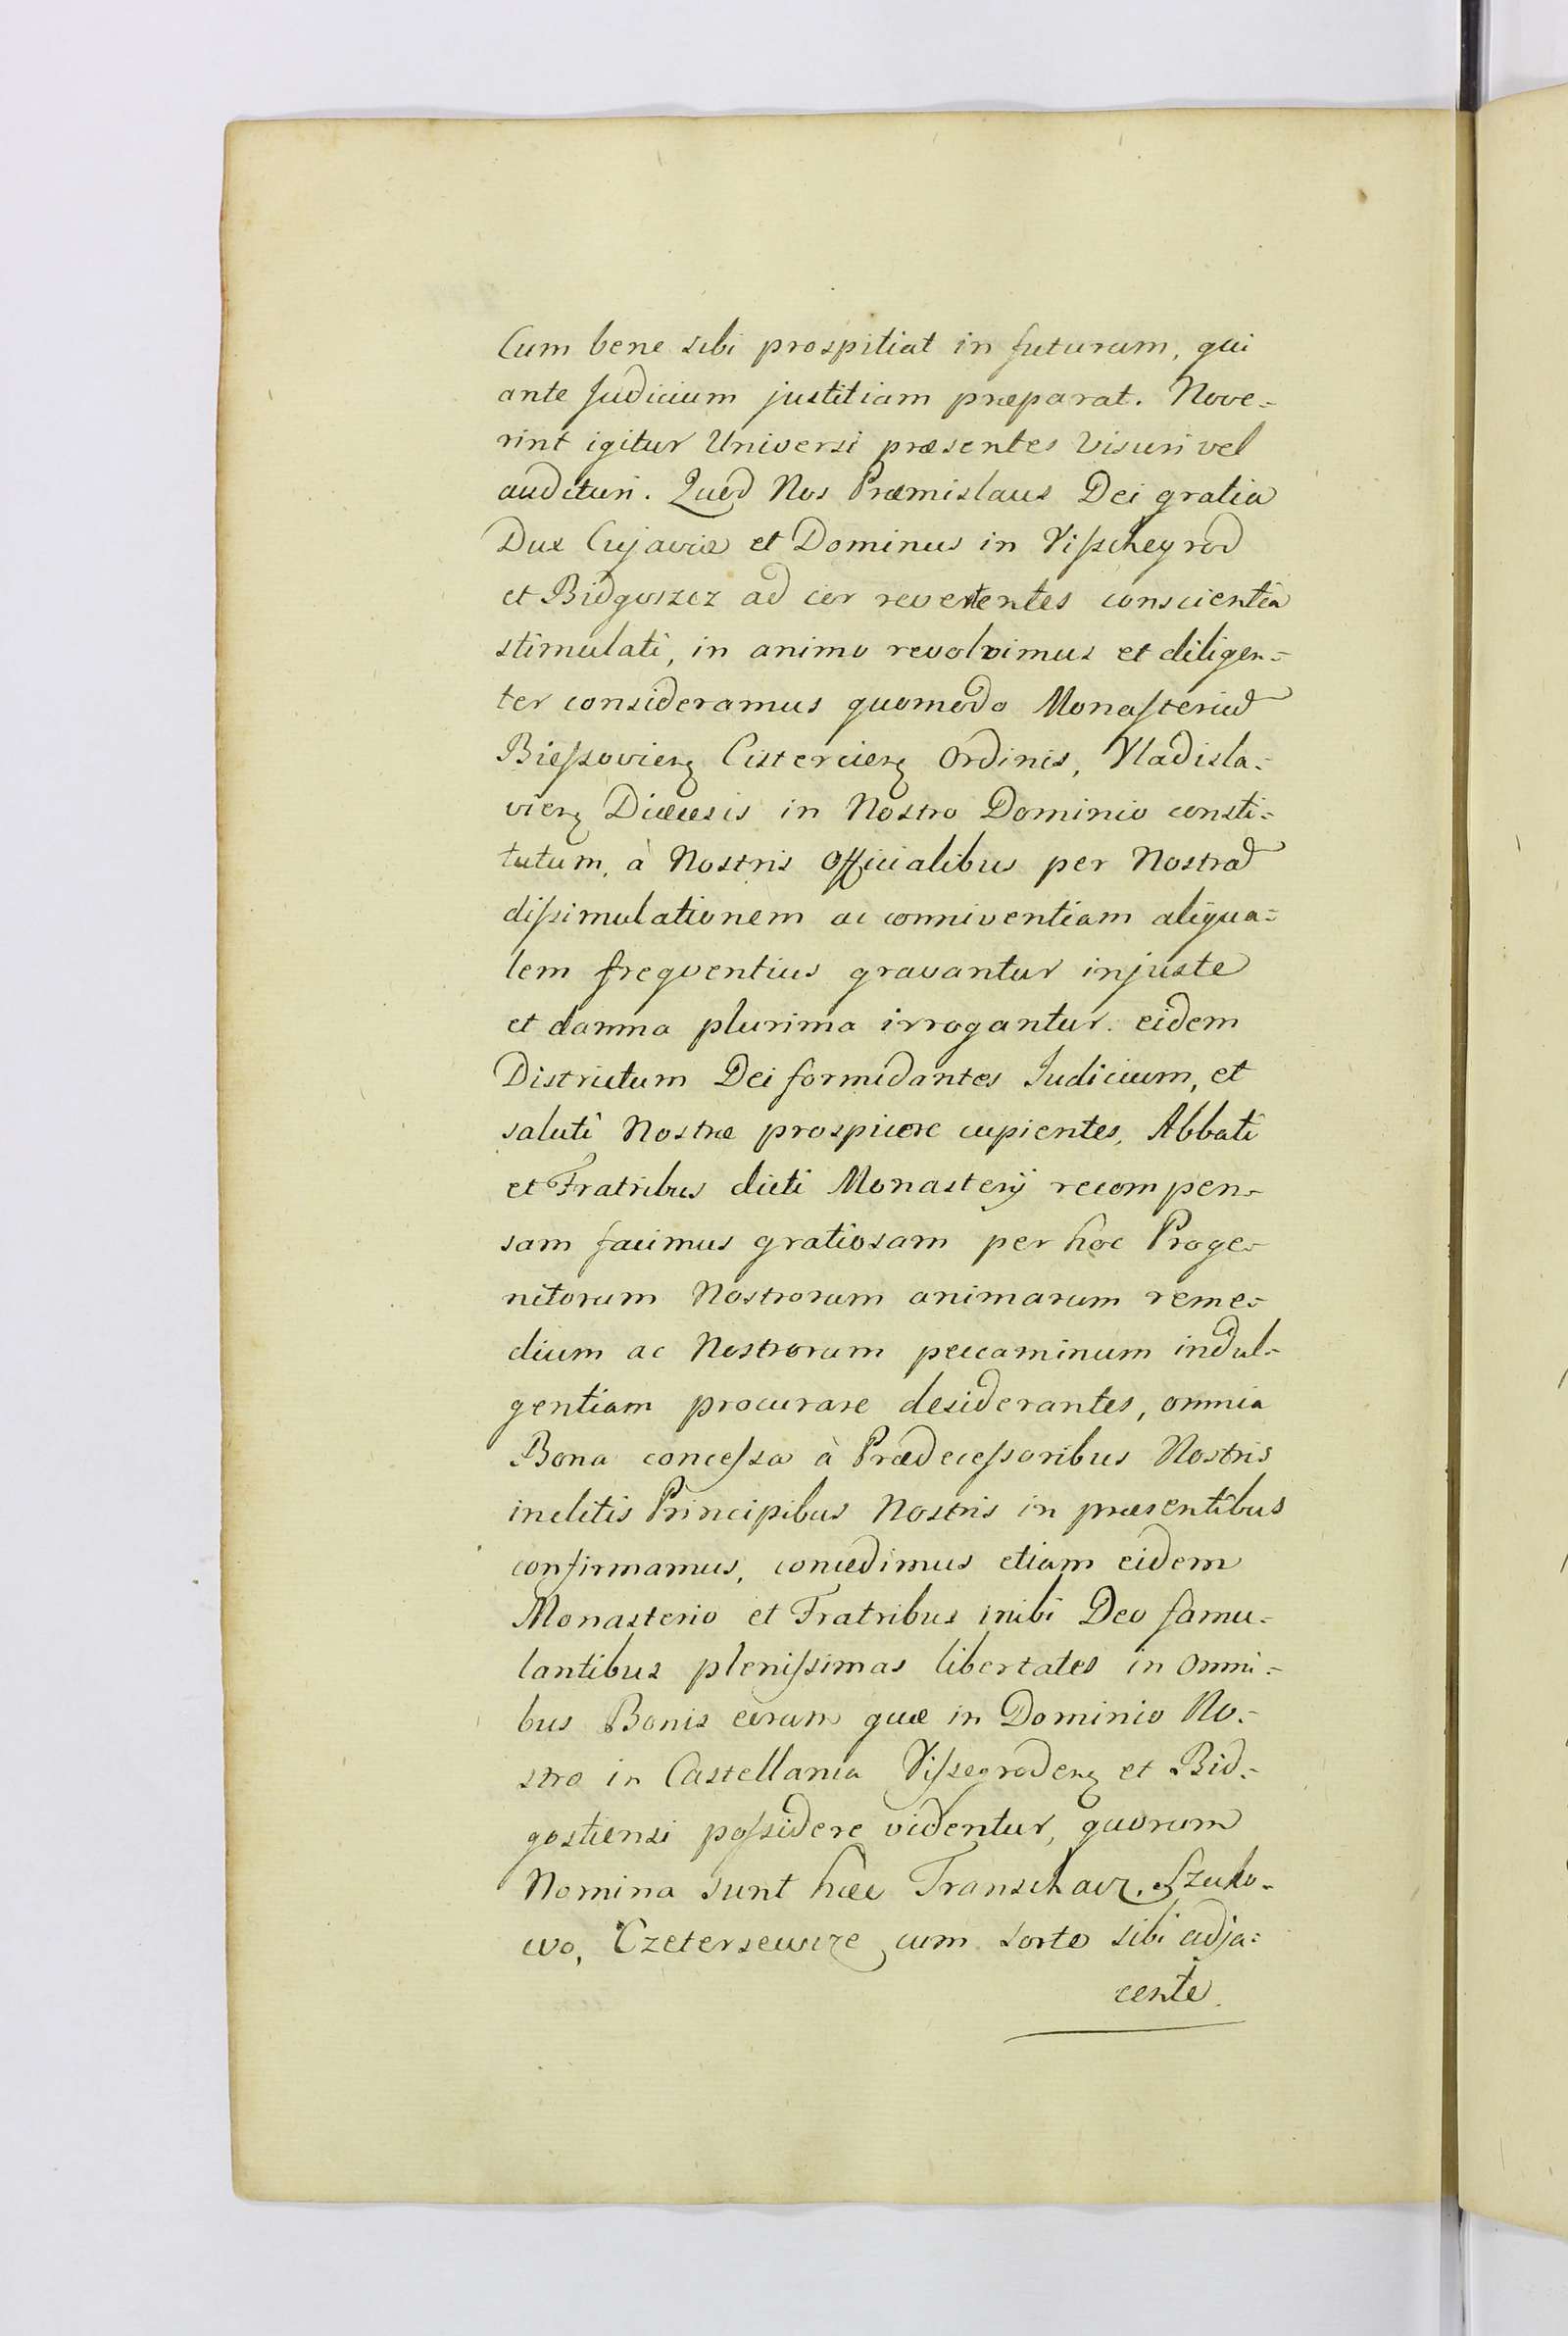 Cum bene sibi prospitiat in futurum, qui
ante Judicium justitiam præparat. Nove=
rint igitur Universi præsentes visuri vel
audituri. Quod Nos Præmislaus Dei gratia
Dux Cujaviæ et Dominus in Viſschegrod
et Bidgoszcz ad cor revertentes conscientia
stimulati, in animo revolvimus et diligen=
ter consideramus quomodo Monaſterium
Bieſsoviens Cisterciens Ordinis, Vladisla=
viens Diœcesis in Nostro Dominio consti=
tutum, à Nostris Officialibus per Nostram
diſsimulationem ac conniventiam aliqua=
lem freqventius gravantur injuste
et damna plurima irrogantur eidem
Districtum Dei formidantes Judicium, et
saluti Nostræ prospicere cupientes, Abbati
et Fratribus dicti Monasterij recompen=
sam facimus gratiosam per hoc Proge=
nitorum Nostrorum animarum reme=
dium ac Nostrorum peccaminum indul=
gentiam procurare desiderantes, omnia
Bona conceſsa à Prædeceſsoribus Nostris
inclitis Principibus Nostris in præsentibus
confirmamus, concedimus etiam eidem
Monasterio et Fratribus inibi Deo famu=
lantibus pleniſsimas libertates in omni=
bus Bonis eorum quæ in Dominio No=
stro in Castellania Viſsegrodens et Bid=
gostiensi poſsidere videntur, quorum
Nomina sunt hæc Transchacz, Szuko=
wo, Czetersewicze cum sorte sibi adja=
cente